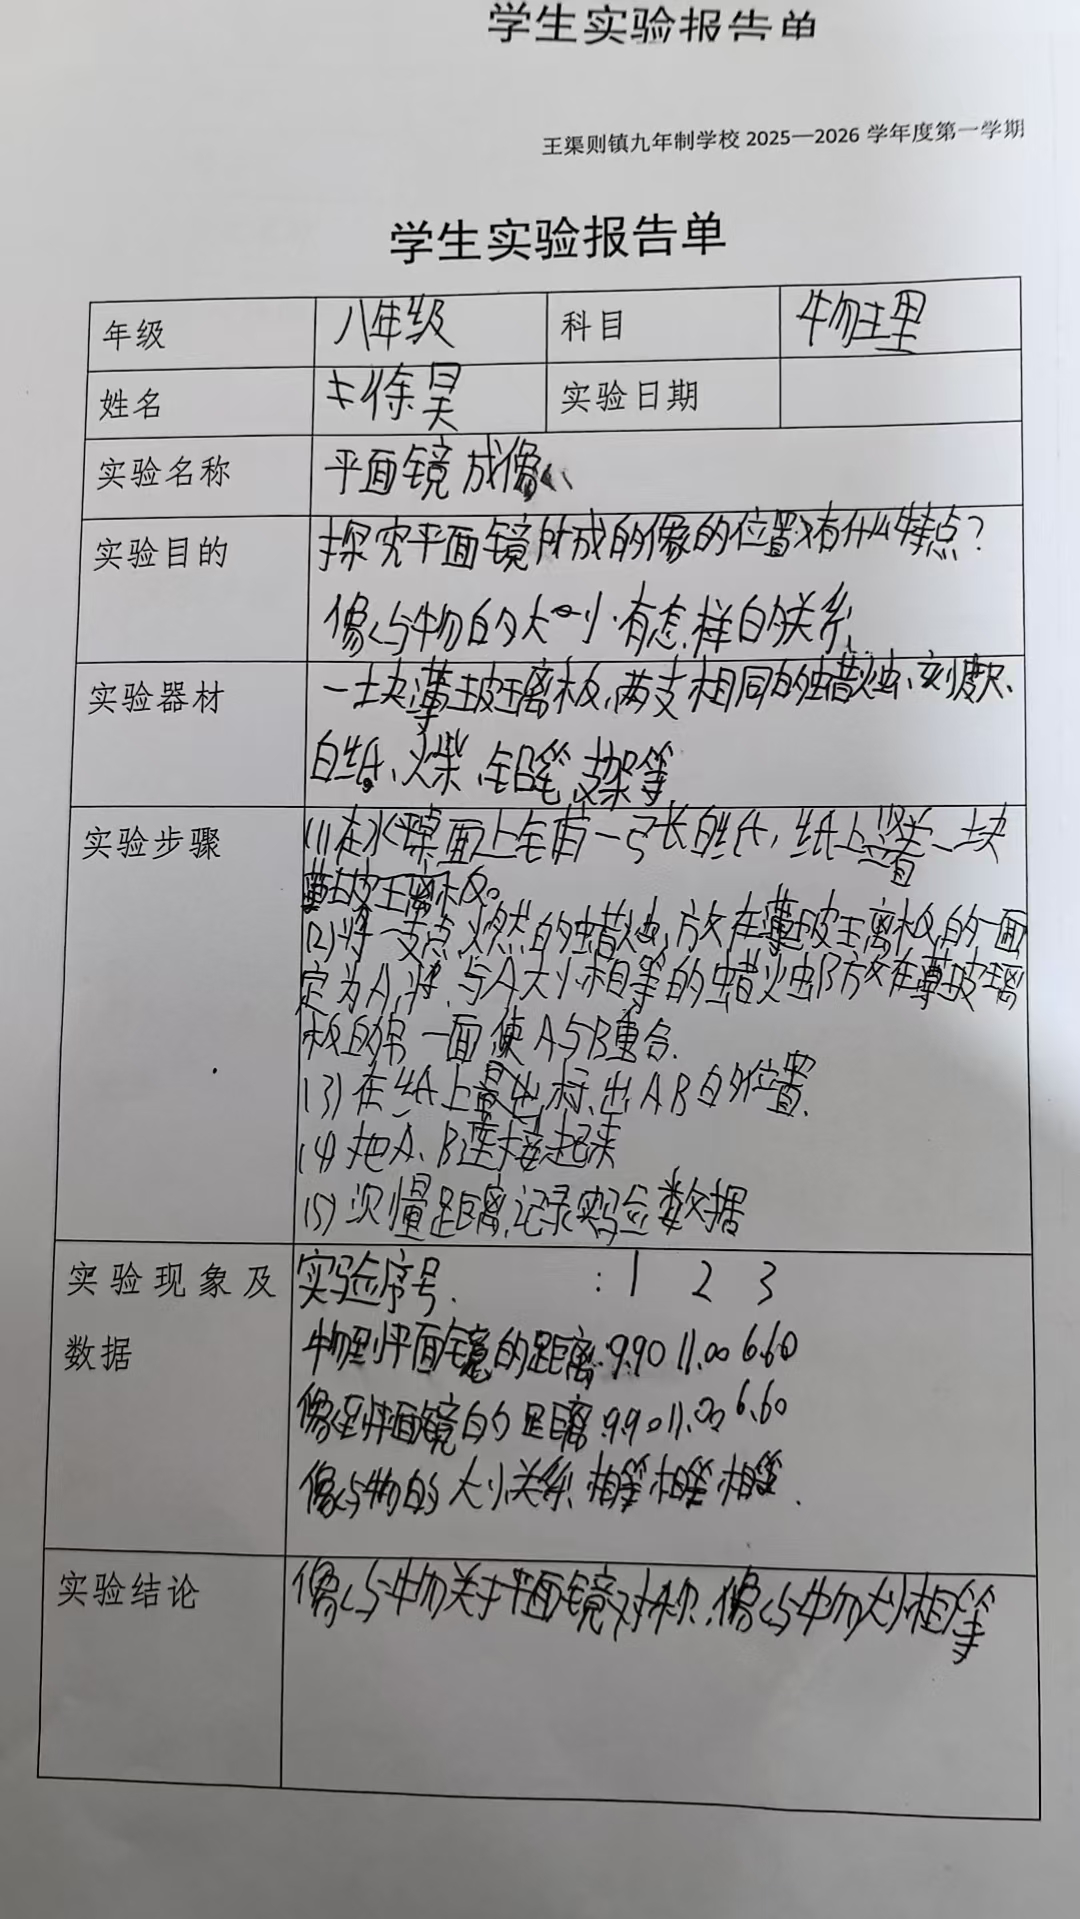 学生实验报告单
王渠则镇九年制学校 2025—2026 学年度第一学期
学生实验报告单
年级 八年级 科目 物理
姓名 徐昊 实验日期
实验名称 平面镜成像
实验目的 探究平面镜所成的像的位置有什么特点?
像与物的大小有怎样的关系
实验器材 一块薄玻璃板、两支相同的蜡烛、刻度尺、
白纸、火柴、铅笔、支架等
实验步骤 (1)在水平桌面上铺一张白纸,纸上竖一块
薄玻璃板。
(2)将一支点燃的蜡烛,放在薄玻璃板的一面
定为A,将与A大小相等的蜡烛B放在薄玻璃
板的另一面使A与B重合.
(3)在纸上标出AB的位置.
(4)把A、B连接起来
(5)测量距离,记录实验数据
实验现象及 实验序号. : 1 2 3
数据 物到平面镜的距离:9.90 11.00 6.60
像到平面镜的距离:9.90 11.00 6.60
像与物的大小关系 相等 相等 相等.
实验结论 像与物关于平面镜对称.像与物大小相等